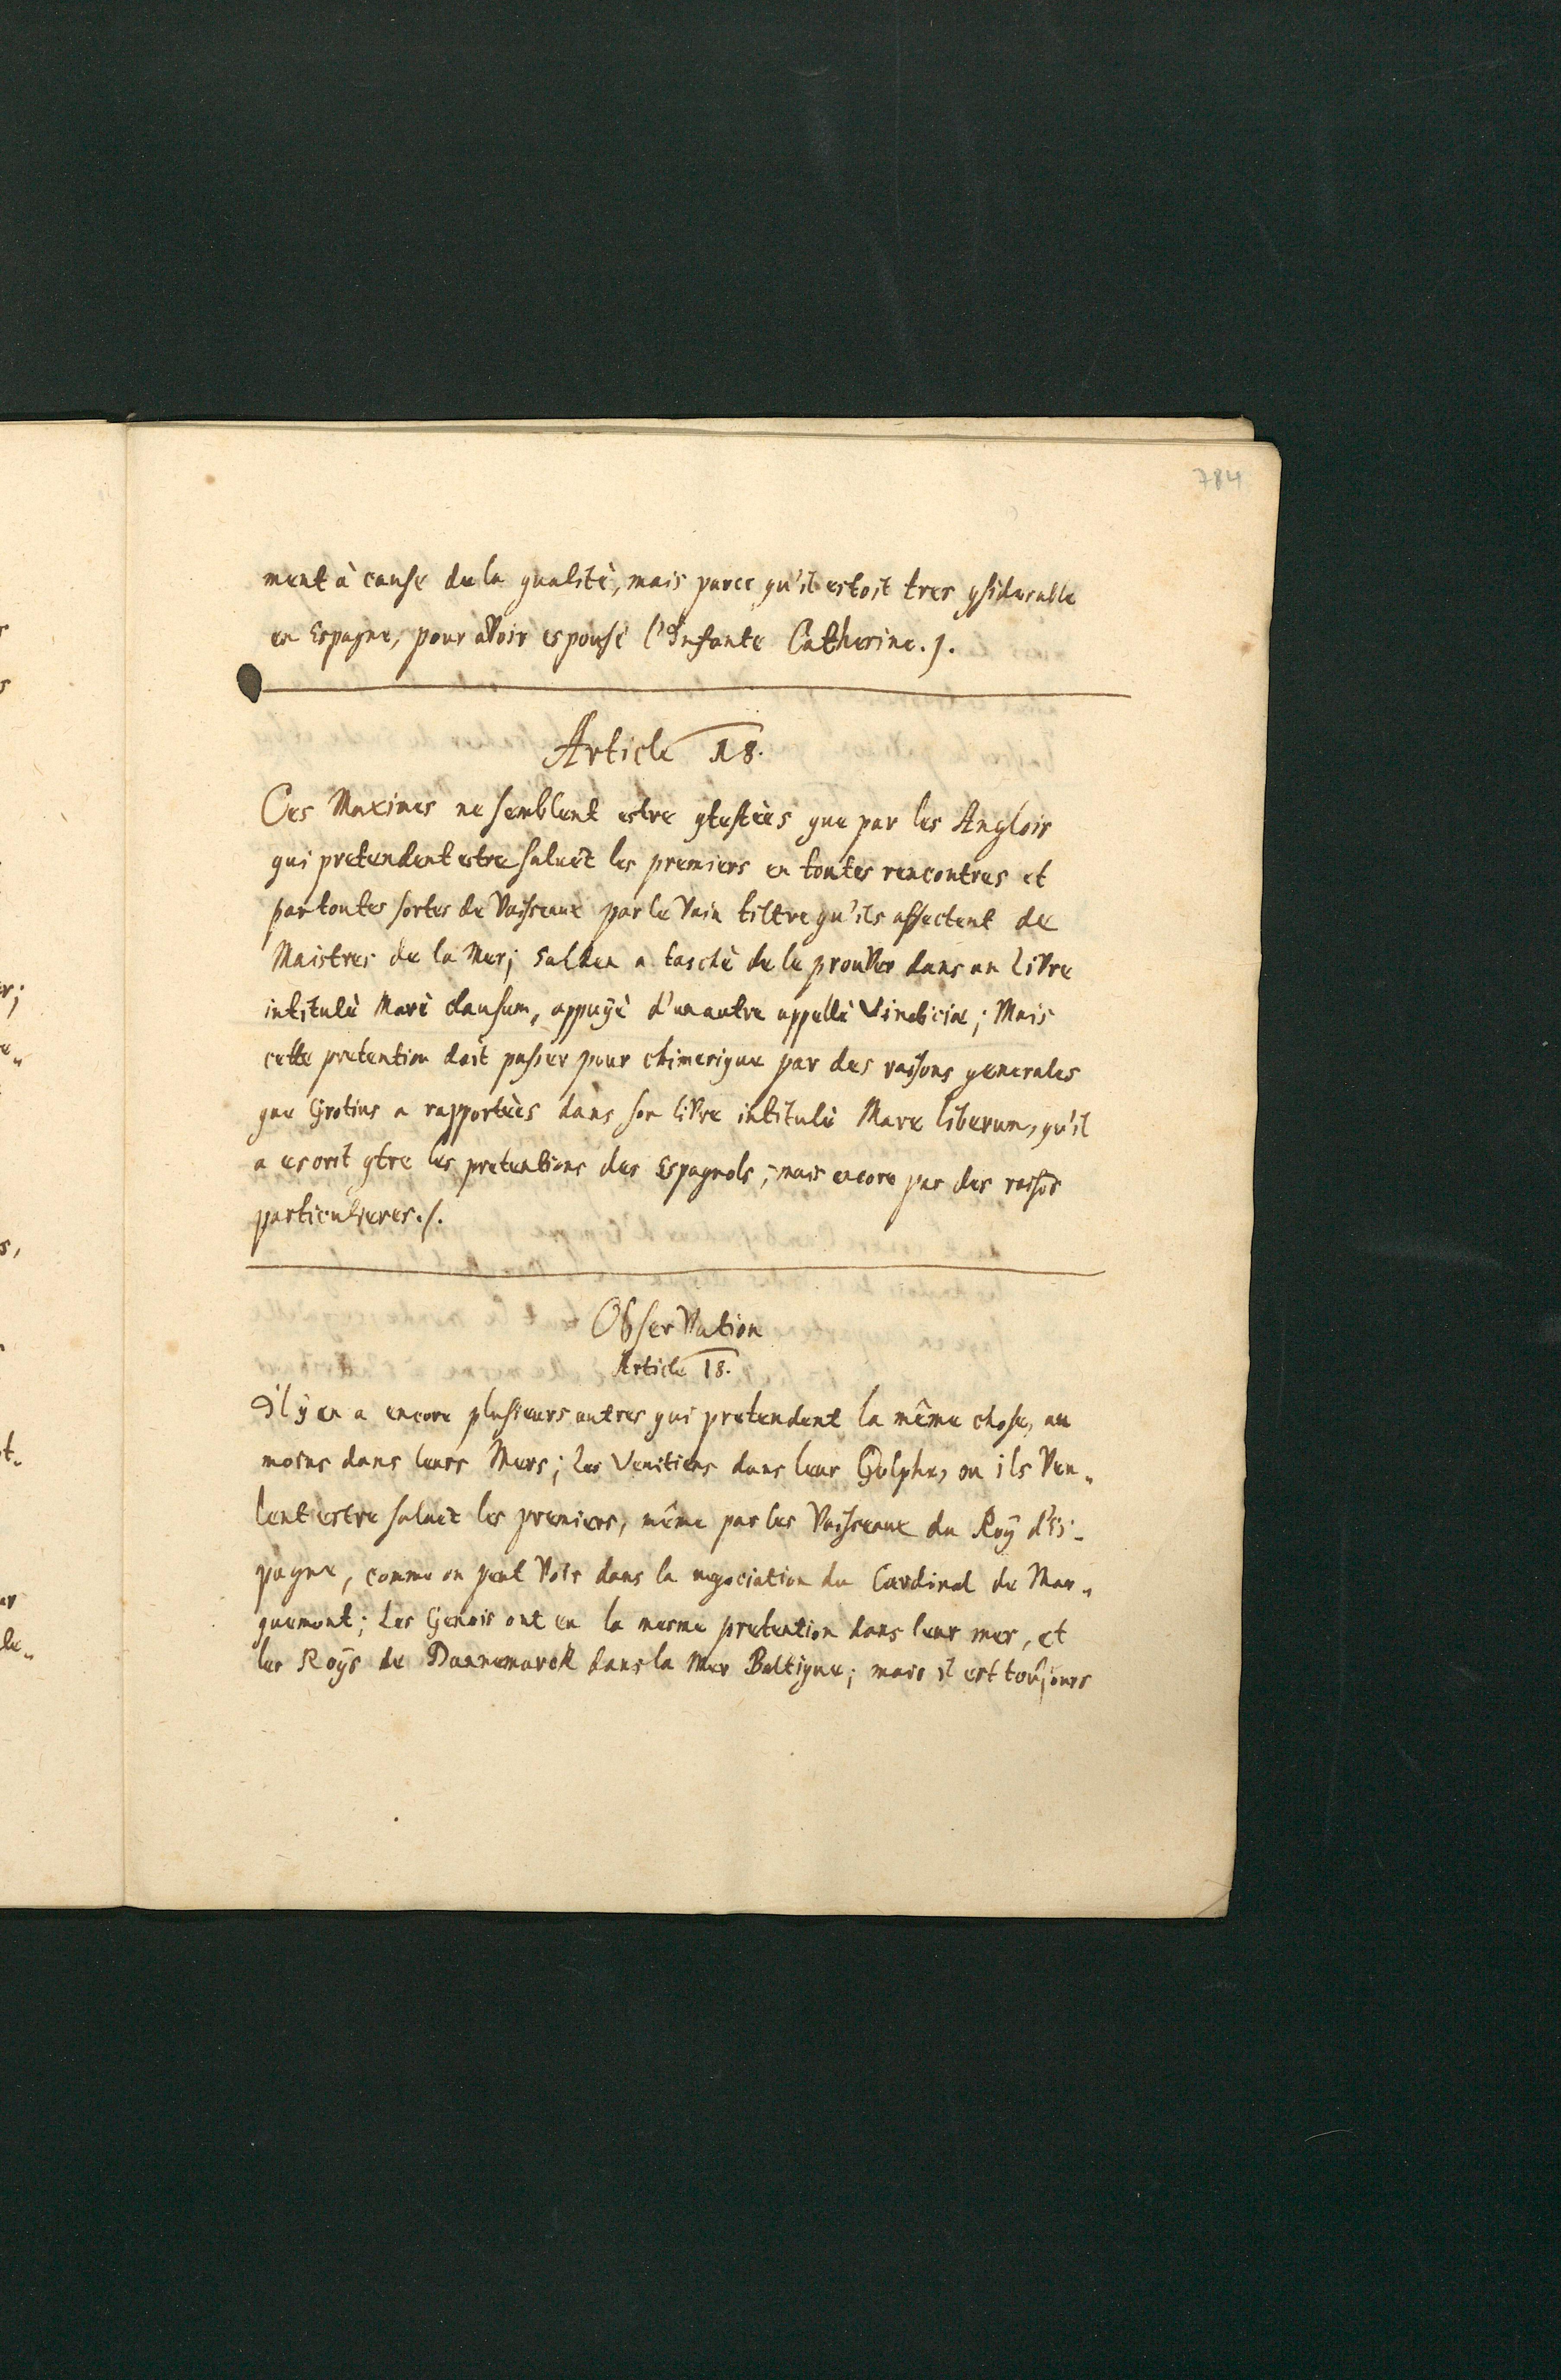 784
ment à cause de la qualité, mais parce qu'il estoit tres gsiderable
en Espagne, pour aVoir espousé l'Infante Catherine./.
Article 18.
Ces Maximes ne semblent estre gtestées que par les Anglois
qui pretendent estre saluéz les premiers en toutes rencontres et
par toutes sortes de Vaisseaux par le Vain tiltre qu'ils affectent de
Maistres de la Mer; Selden a tasché de le prouVer dans un LiVre
intitulé Maré clausum, appuÿé d'un autre appellé Vindiciæ; Mais
cette pretention doit passer pour chimerique par des raisons generales
que Grotius a rapportées dans son liVre intitulé Mare liberum, qu'il
a escrit gtre les pretentions des Espagnols; mais encore par des raisõs
particulieres./.
ObserVation
Article 18.
Il ÿ en a encore plusieurs autres qui pretendent la même chose, au
moins dans leurs Mers; Les Venitiens dans leur Golphe, ou ils Veu-
lent estre saluéz les premiers, même par les Vaisseaux du Roÿ d'Es-
pagne, comme on peut Voir dans la negociation du Cardinal de Mar-
quemont; Les Genois ont eu la mesme pretention dans leur mer, et
les Roÿs de Dannemarck dans la Mer Baltique; mais il est toûjours